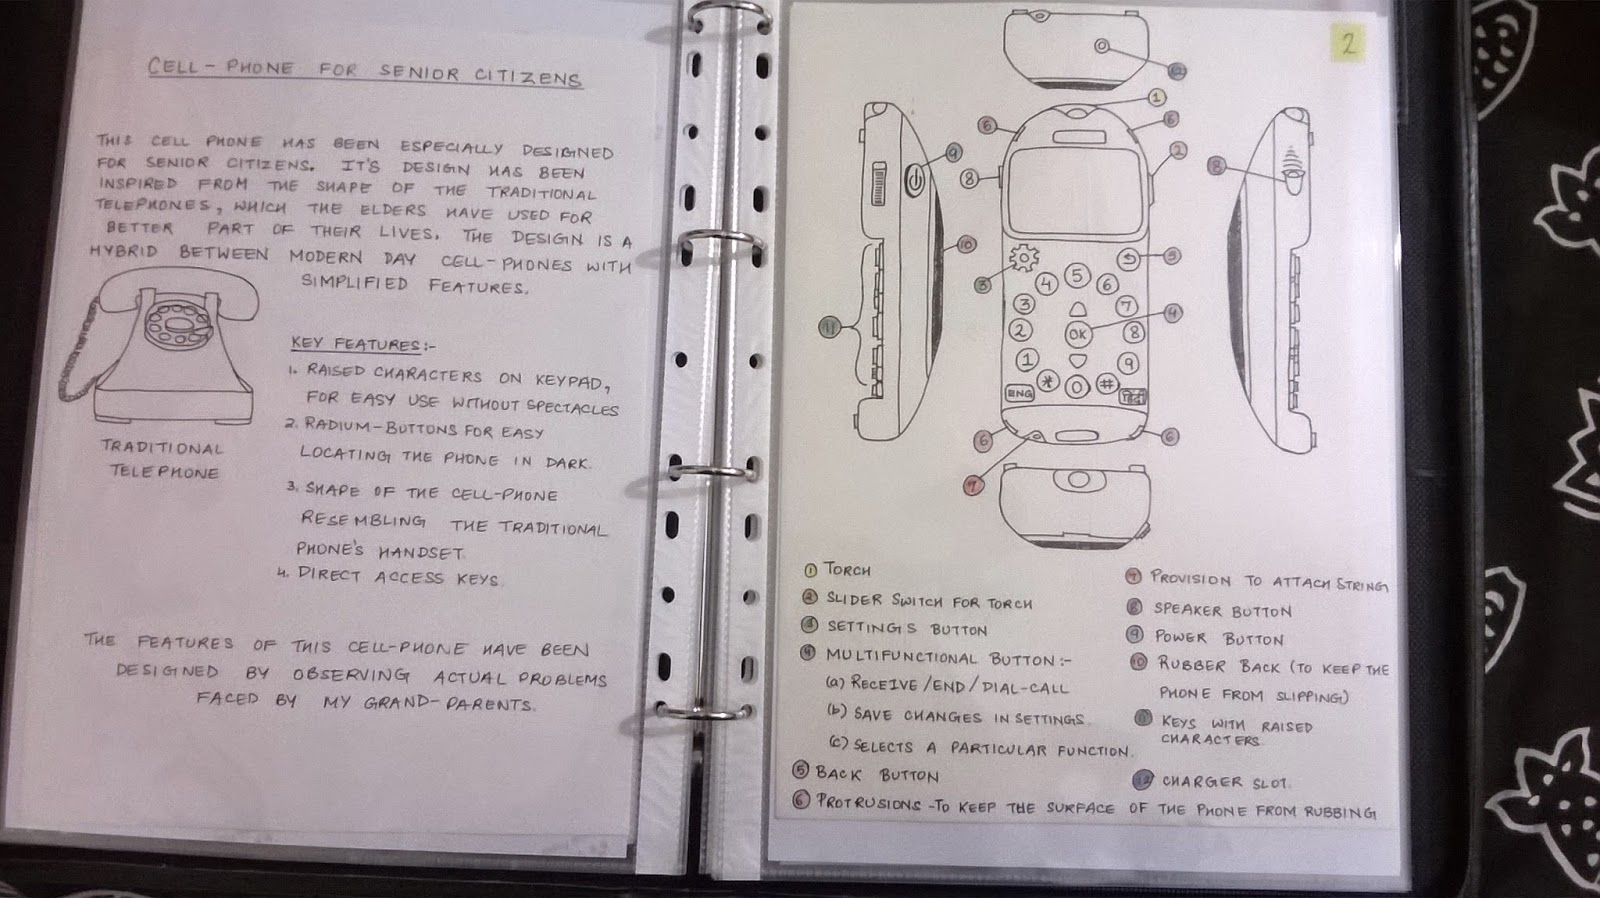 CELL-PHONE FOR SENIOR CITIZENS
THIS CELL PHONE HAS BEEN ESPECIALLY DESIGNED
FOR SENIOR CITIZENS. IT'S DESIGN HAS BEEN
INSPIRED FROM THE SHAPE OF THE TRADITIONAL
TELEPHONES, WHICH THE ELDERS HAVE USED FOR
BETTER PART OF THEIR LIVES. THE DESIGN IS A
HYBRID BETWEEN MODERN DAY CELL-PHONES WITH
SIMPLIFIED FEATURES.
TRADITIONAL
TELEPHONE
KEY FEATURES:-
1. RAISED CHARACTERS ON KEYPAD,
FOR EASY USE WITHOUT SPECTACLES
2. RADIUM-BUTTONS FOR EASY
LOCATING THE PHONE IN DARK.
3. SHAPE OF THE CELL-PHONE
RESEMBLING THE TRADITIONAL
PHONE'S HANDSET.
4. DIRECT ACCESS KEYS.
THE FEATURES OF THIS CELL-PHONE HAVE BEEN
DESIGNED BY OBSERVING ACTUAL PROBLEMS
FACED BY MY GRAND-PARENTS.
2
12
1
6 6
9 8 2 8
10 3 5
4 5 6
3 7
11 2 OK 8 4
1 9
* 0 #
ENG हिंदी
6 6
7
1 TORCH
2 SLIDER SWITCH FOR TORCH
3 SETTINGS BUTTON
4 MULTIFUNCTIONAL BUTTON:-
(a) RECEIVE/END/DIAL-CALL
(b) SAVE CHANGES IN SETTINGS.
(c) SELECTS A PARTICULAR FUNCTION.
5 BACK BUTTON
6 PROTRUSIONS-TO KEEP THE SURFACE OF THE PHONE FROM RUBBING
7 PROVISION TO ATTACH STRING
8 SPEAKER BUTTON
9 POWER BUTTON
10 RUBBER BACK (TO KEEP THE
PHONE FROM SLIPPING)
11 KEYS WITH RAISED
CHARACTERS.
12 CHARGER SLOT.